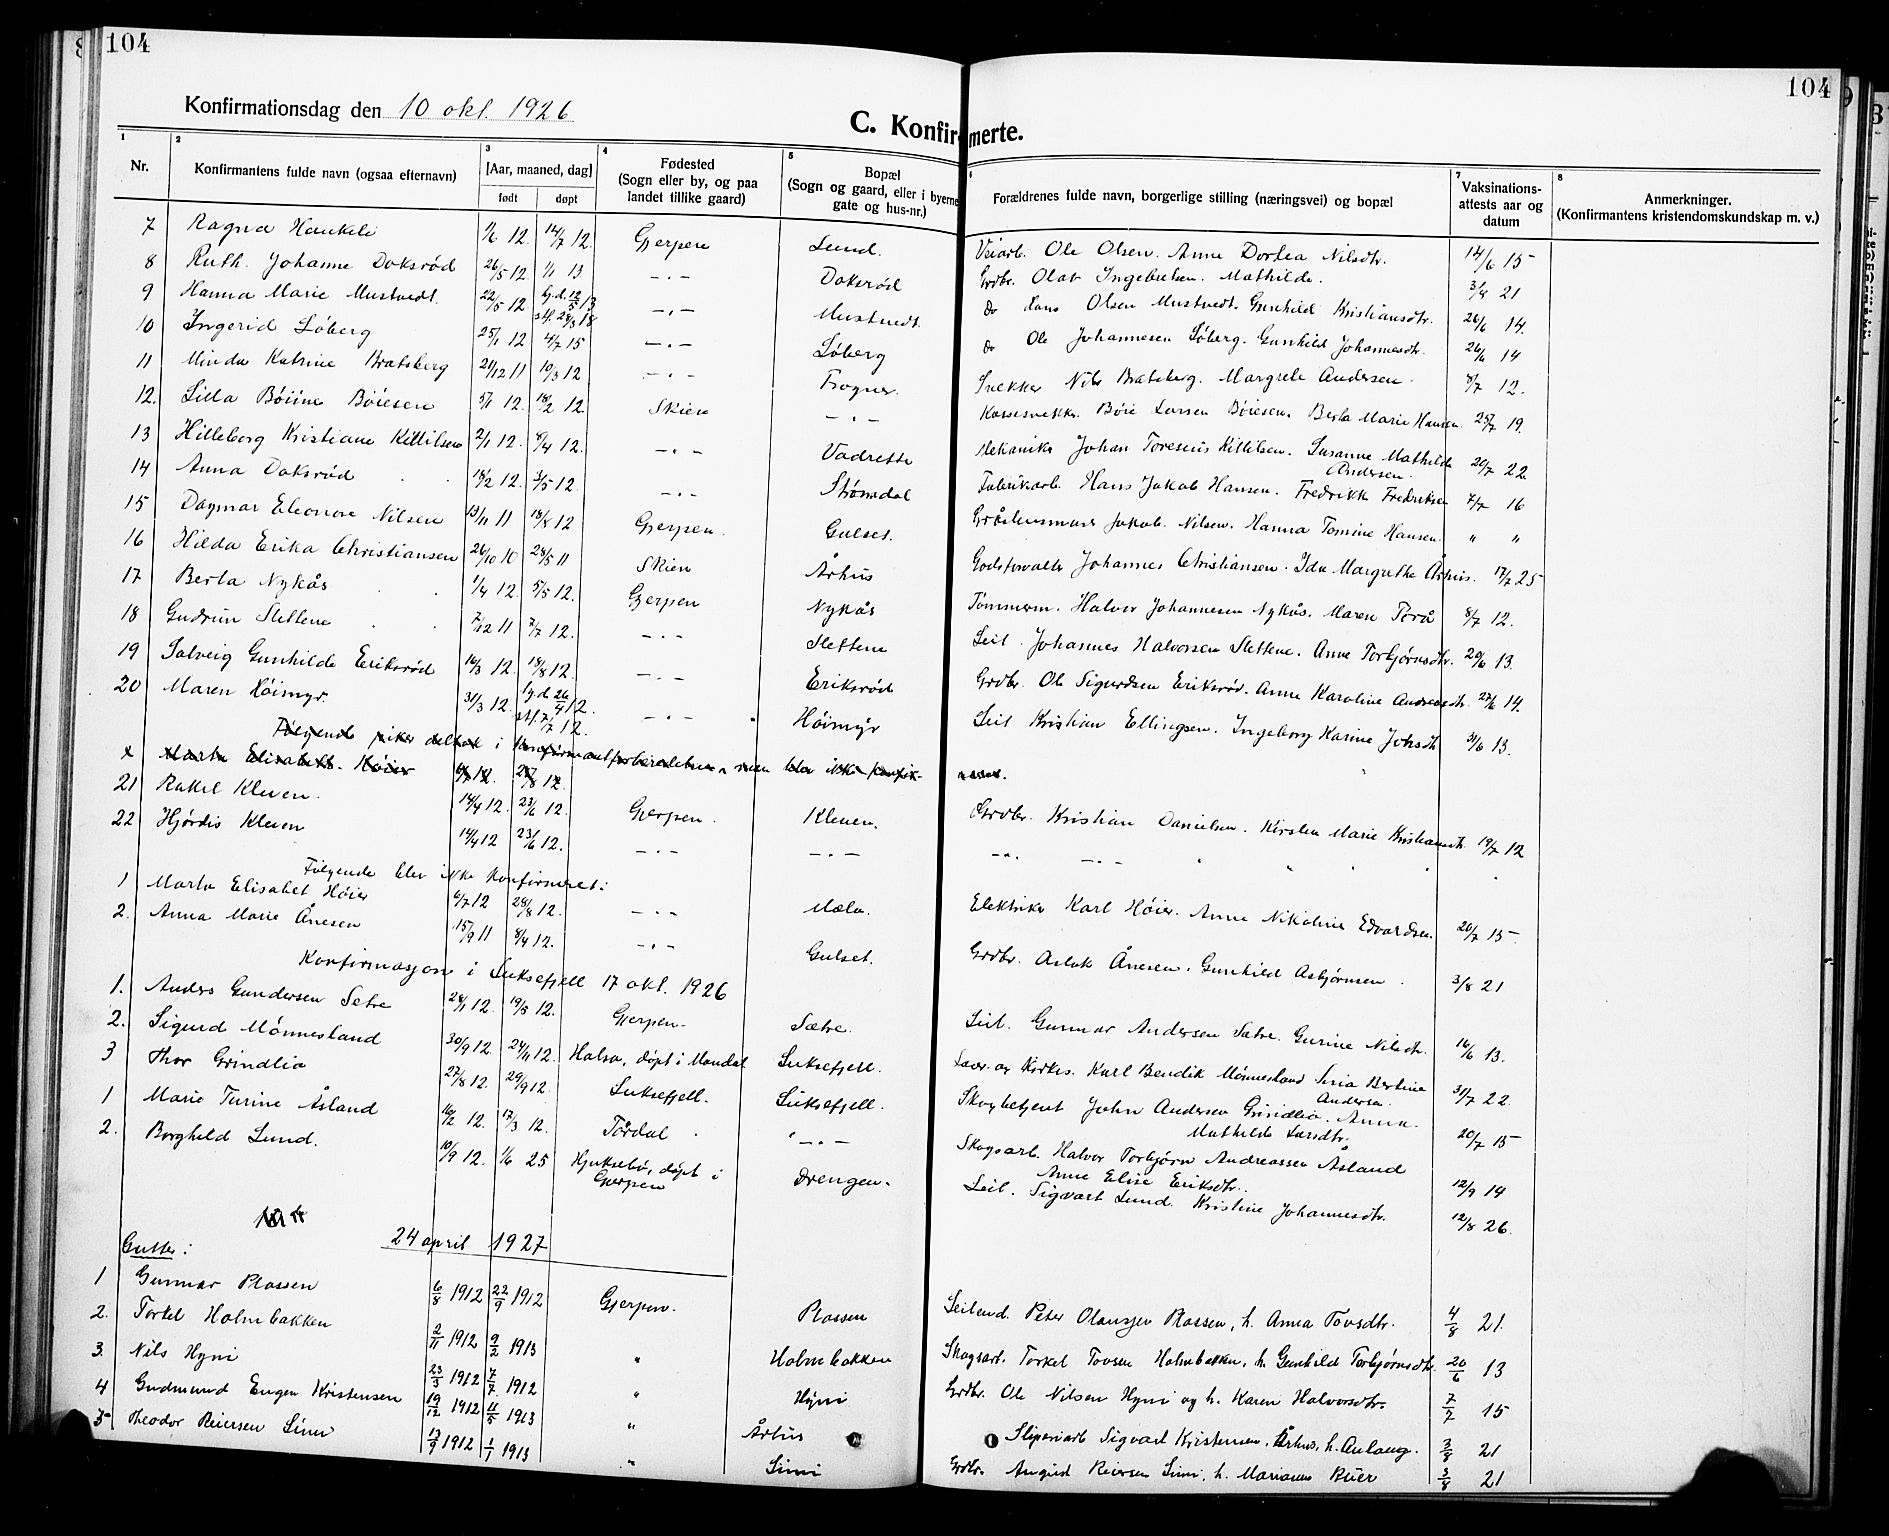 104
104
Konfirmationsdag den 10 okt. 1926
C. Konfirmerte.
1 2 3 4 5 6 7 8
Nr. Konfirmantens fulde navn (ogsaa efternavn) [Aar, maaned, dag] født døpt Fødested (Sogn eller by, og paa landet tillike gaard) Bopæl (Sogn og gaard, eller i byerne gate og hus-nr.) Forældrenes fulde navn, borgerlige stilling (næringsvei) og bopæl Vaksinations-attests aar og datum Anmerkninger. (Konfirmantens kristendomskundskap m. v.)
7 Ragna Haukeli 1/6 12. 14/7 12. Gjerpen Lund. Veiarb. Ole Olsen. Anne Dortea Nilsdtr. 14/6 15
8 Ruth Johanne Doksrød 26/5 12. 1/1 13 -.- Doksrød Grdbr. Olav Ingebretsen. Mathilde. 3/8 21
9 Hanna Marie Mustvedt. 22/5 12. hj.d. 12/5 13 st.f. -.- Mustvedt. do Hans Olsen Mustvedt. Gunhild Kristiansdtr. 26/6 14.
10 Ingerid Løberg 25/1 12 4/7 15 -.- Løberg do Ole Johannesen Løberg. Gunhild Johannesdtr. 26/6 14
11 Minda Katrine Bratsberg 21/12 11 10/3 12 -.- Frogner. Snekker Nils Bratsberg. Margrete Andersen. 8/7 12.
12. Lilla Bøiine Bøiesen 5/1 12. 18/2 12. Skien -.- Kassesnekk. Bøie Larsen Bøiesen. Berta Marie Hansen. 25/7 19.
13 Hilleborg Kristiane Kittilsen 2/1 12. 8/4 12. -.- Vadrette Mekaniker Johan Toresius Kittilsen. Susanne Mathilde Andersen. 20/7 22.
14 Anna Doksrød 18/2 12. 3/5 12. -.- Strømdal Fabrikarb. Hans Jakob Hansen. Fredrikke Fredriksen 7/7 16
15 Dagmar Eleonore Nilsen 13/11 11 18/8 12 Gjerpen. Gulset. Jakob Nilsen. Hanna Tomine Hansen. " "
16 Hilda Erika Christiansen 26/10 10 28/5 11 Skien Århus Godsforvalter Johannes Christiansen. Ida Margrethe Århus. 17/7 25
17 Berta Nykås 1/4 12. 5/5 12. Gjerpen Nykås Tømmerm. Halvor Johannesen Nykås. Maren Torå 8/7 12.
18 Gudrun Slettene 7/12 11 7/7 12. -.- Slettene Leil. Johannes Halvorsen Slettene. Anne Torbjørnsdtr. 20/6 13.
19 Solveig Gunhilde Eriksrød 16/3 12. 18/8 12. -.- Eriksrød Grdbr. Ole Sigurdsen Eriksrød. Anne Karoline Andreasdtr. 27/6 14.
20 Maren Høimyr. 31/3 12. hj.d. 26/4 12. st.f. 7/7 12. -.- Høimyr Leil Kristian Ellingsen. Ingeborg Karine Johsdtr. 3/6 13.
Følgende piker deltok i konfirmantforberedelsen, men blev ikke konfirmeret.
x Marta Elisabeth Høier 6/7 12. 28/8 12.
21 Rakel Kleven. 14/4 12. 23/6 12. Gjerpen. Kleven. Grdbr. Kristian Danielsen. Kirsten Marie Kristiansdtr. 19/7 12
22 Hjørdis Kleven 14/4 12 23/6 12. -.- -.- -"- -.- " " " "
Følgende blev ikke konfirmeret:
1 Marta Elisabet Høier 6/7 12 28/8 12. -.- Mæla. Elektriker Karl Høier. Anne Nikoline Edvardsen. 20/7 15.
2. Anna Marie Ånesen 15/9 11 8/4 12. -.- Gulset. Grdbr. Aslak Ånesen. Gunhild Asbjørnsen. 3/8 21
Konfirmasjon i Luksefjell 17 okt. 1926
1. Anders Gundersen Sætre 28/1 12. 19/5 12. Gjerpen. Sætre. Leil. Gunnar Andersen Sætre. Gurine Nilsdtr. 16/6 13.
2. Sigurd Mønnesland 30/9 12. 24/11 12. Halså, døpt i Mandal Luksefjell. Lær. og Kirkes. Karl Bendik Mønnesland Siria Bertine Andersen. 31/7 22.
3 Thor Grindlia 27/8 12. 29/9 12. Luksefjell. Luksefjell. Skogbetjent John Andersen Grindlia. Anna Mathilde Larsdtr. 20/7 15
1 Marie Turine Åsland 16/2 12. 17/3 12. Tørdal. " -.- Skogsarb. Halvor Torbjørn Andreassen Åsland Anne Elise Eriksdtr. 12/9 14
2. Borghild Lund. 10/9 12. 1/6 25 Hjuksebø, døpt i Gjerpen Drengen. Leil. Sigvart Lund. Kristine Johannesdtr. 12/8 26.
24 april 1927
Gutter:
1 Gunnar Plassen 6/8 1912 22/9 1912 Gjerpen. Plassen Leilend. Peter Olausen Plassen, h. Anna Tovsdtr. 4/8 21.
2. Torkel Holmbakken 2/11 1912 9/2 1913 " Holmbakken Skogsarb. Torkel Tovsen Holmbakken, h. Gunhild Torbjørnsdtr. 20/6 13
3. Nils Hyni 23/3 1912 7/7 1912 " Hyni Grdbr. Ole Nilsen Hyni og h. Karen Halvorsdtr. 7/7 15
4 Gudmund Eugen Kristensen 19/12 1912 11/5 1913 " Århus Sliperiarb Sigvart Kristensen, Århus, h. Anlaug. 3/8 21
5 Theodor Reiersen Limi 13/9 1912 1/1 1913 " Limi Grdbr. August Reiersen Limi, h. Mariane Buer 3/8 21